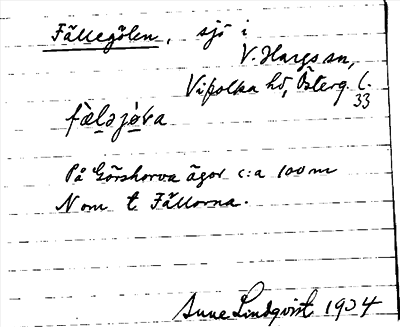 Fällegölen, sjö i
V. Hargs sn,
Vifolka hd, Österg. l.
33
fæ̀ləjø̀va
På Görshorva ägor c:a 100 m
N om t. Fällorna.
Sune Lindqvist 1934